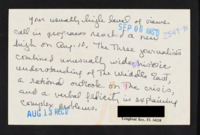 your usually high level of viewer-
call in programs reached a new
SEP 08 RECD
high on Aug. 10. The three journalists
combined unusually wide historic
understanding of the Middle East,
a rational outlook on the crisis,
and a verbal felicity in explaining
complex problems.
AUG 13 RECD
Longboat Key, FL 34228